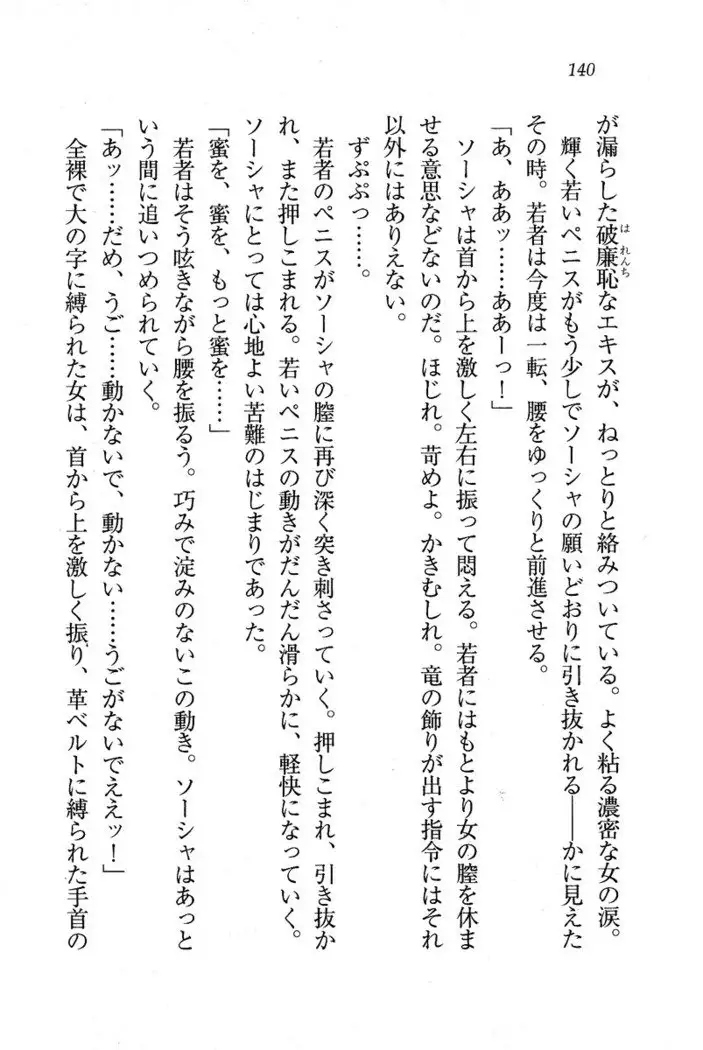 140
が漏らした破廉恥なエキスが、ねっとりと絡みついている。よく粘る濃密な女の涙。
はれんち
輝く若いペニスがもう少しでソーシャの願いどおりに引き抜かれる――かに見えた
その時。若者は今度は一転、腰をゆっくりと前進させる。
「あ、ああッ……ああーっ！」
ソーシャは首から上を激しく左右に振って悶える。若者にはもとより女の膣を休ま
せる意思などないのだ。ほじれ。苛めよ。かきむしれ。竜の飾りが出す指令にはそれ
以外にはありえない。
ずぷぷっ……。
若者のペニスがソーシャの膣に再び深く突き刺さっていく。押しこまれ、引き抜か
れ、また押しこまれる。若いペニスの動きがだんだん滑らかに、軽快になっていく。
ソーシャにとっては心地よい苦難のはじまりであった。
「蜜を、蜜を、もっと蜜を……」
若者はそう呟きながら腰を振るう。巧みで淀みのないこの動き。ソーシャはあっと
いう間に追いつめられていく。
「あッ……だめ、うご……動かないで、動かない……うごがないでええッ！」
全裸で大の字に縛られた女は、首から上を激しく振り、革ベルトに縛られた手首の